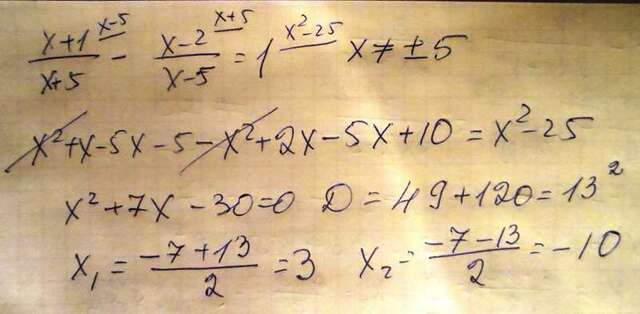 (x+1)/(x+5) ^(x-5) - (x-2)/(x-5) ^(x+5) = 1 ^(x²-25) x ≠ ±5
x²+x-5x-5-x²+2x-5x+10=x²-25
x²+7x-30=0 D=49+120=13²
x₁=(-7+13)/2=3 x₂=(-7-13)/2=-10